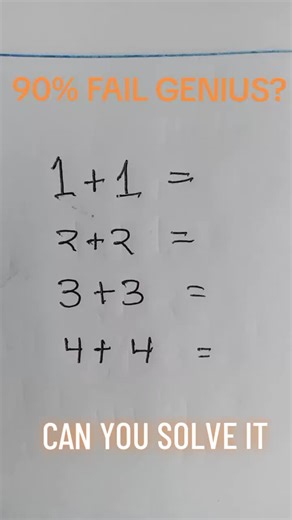 90% FAIL GENIUS?
1+1 =
2+2 =
3+3 =
4+4 =
CAN YOU SOLVE IT